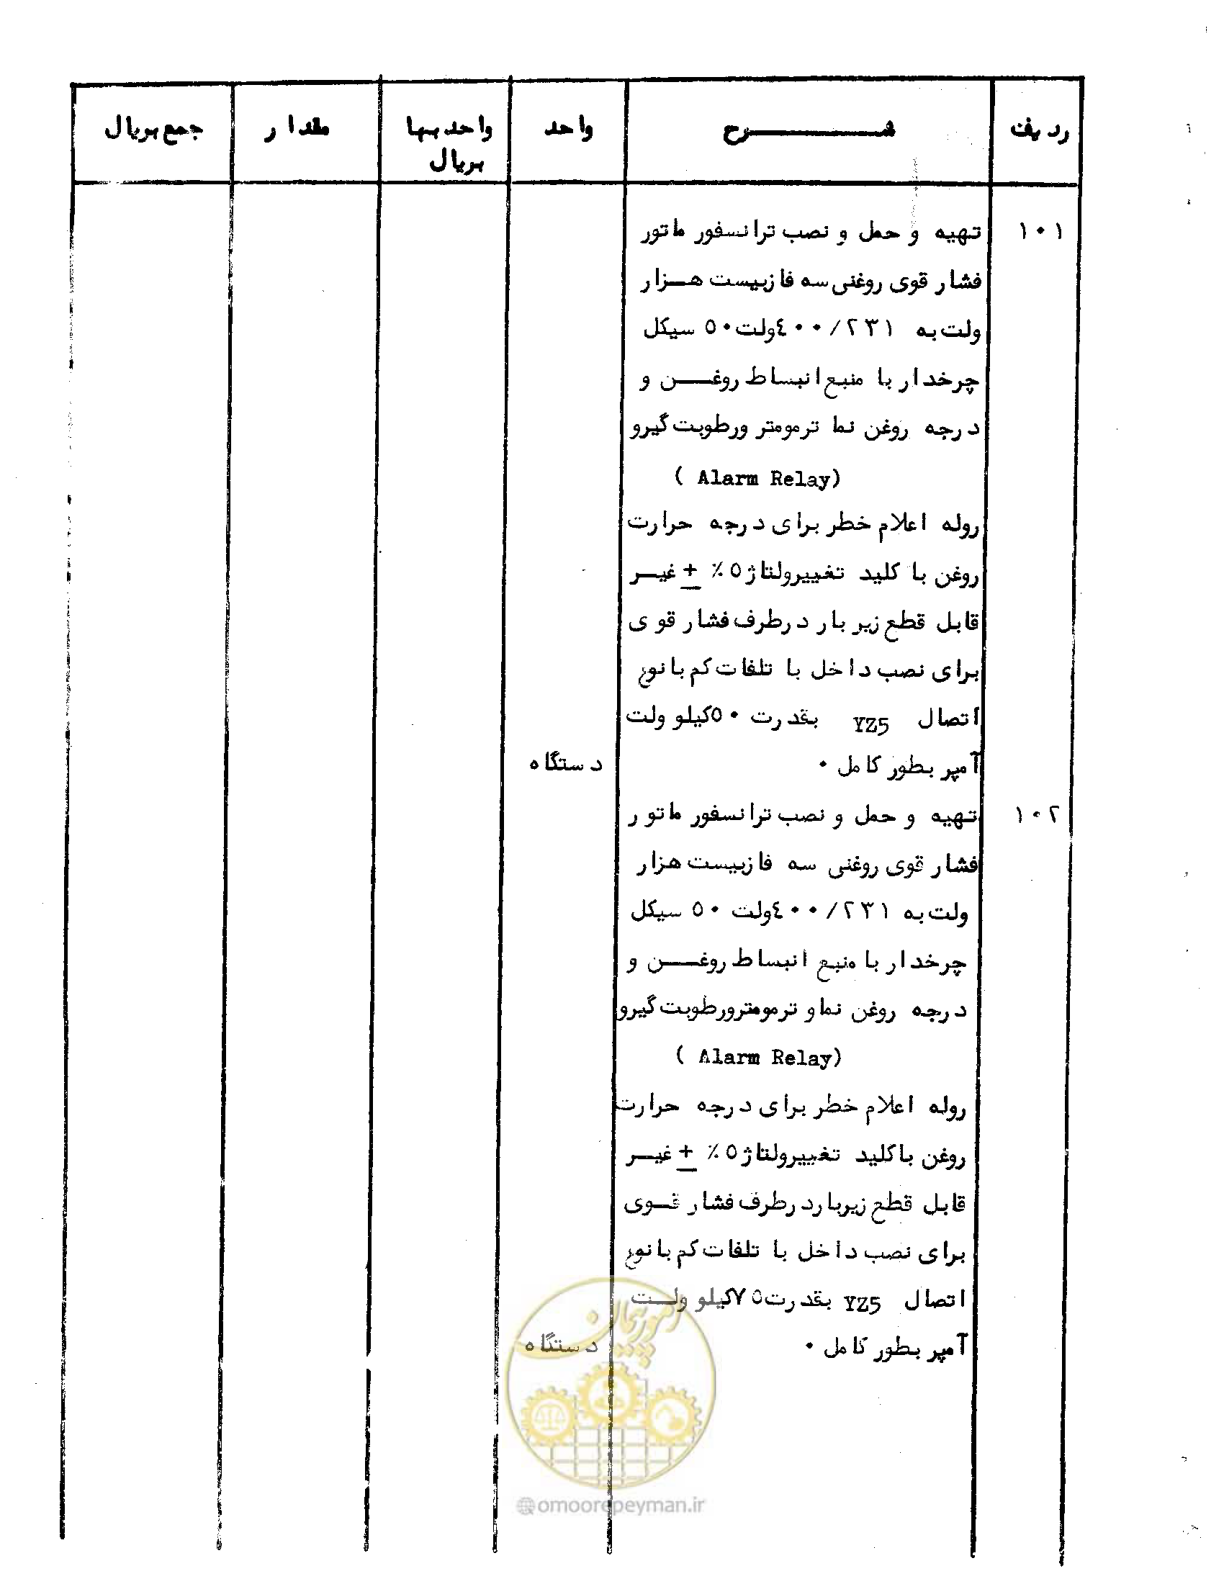 ردیف شرح واحد واحد بها بریال مقدار جمع بریال
۱۰۱ تهیه و حمل و نصب ترانسفورماتور
فشار قوی روغنی سه فاز بیست هزار
ولت به ۴۰۰/۲۳۱ ولت ۵۰ سیکل
چرخدار با منبع انبساط روغن و
درجه روغن نما ترمومتر و رطوبت گیر و
( Alarm Relay)
روله اعلام خطر برای درجه حرارت
روغن با کلید تغییر ولتاژ ۵٪ ± غیر
قابل قطع زیر بار در طرف فشار قوی
برای نصب داخل با تلفات کم با نوع
اتصال YZ5 بقدرت ۵۰ کیلو ولت
آمپر بطور کامل ۰ دستگاه
۱۰۲ تهیه و حمل و نصب ترانسفورماتور
فشار قوی روغنی سه فاز بیست هزار
ولت به ۴۰۰/۲۳۱ ولت ۵۰ سیکل
چرخدار با منبع انبساط روغن و
درجه روغن نما و ترمومتر و رطوبت گیر و
( Alarm Relay)
روله اعلام خطر برای درجه حرارت
روغن با کلید تغییر ولتاژ ۵٪ ± غیر
قابل قطع زیر بار در طرف فشار قوی
برای نصب داخل با تلفات کم با نوع
اتصال YZ5 بقدرت ۷۵ کیلو ولت
آمپر بطور کامل ۰ دستگاه
امور پیمان
omoorepeyman.ir